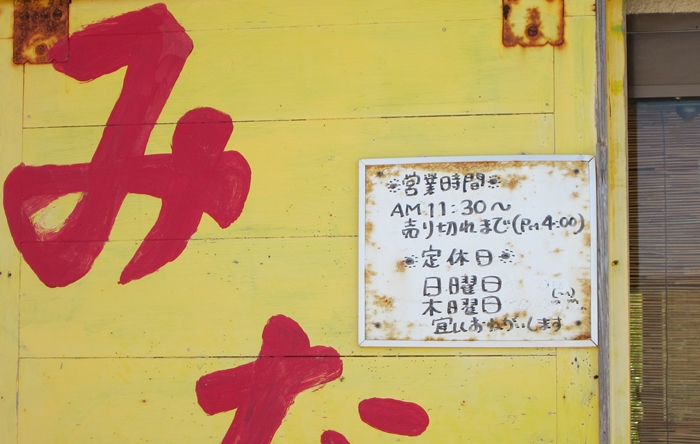 み
な
※営業時間※
AM.11:30〜
売り切れまで(PM4:00)
※定休日※
日曜日
木曜日
宜しくおねがいします